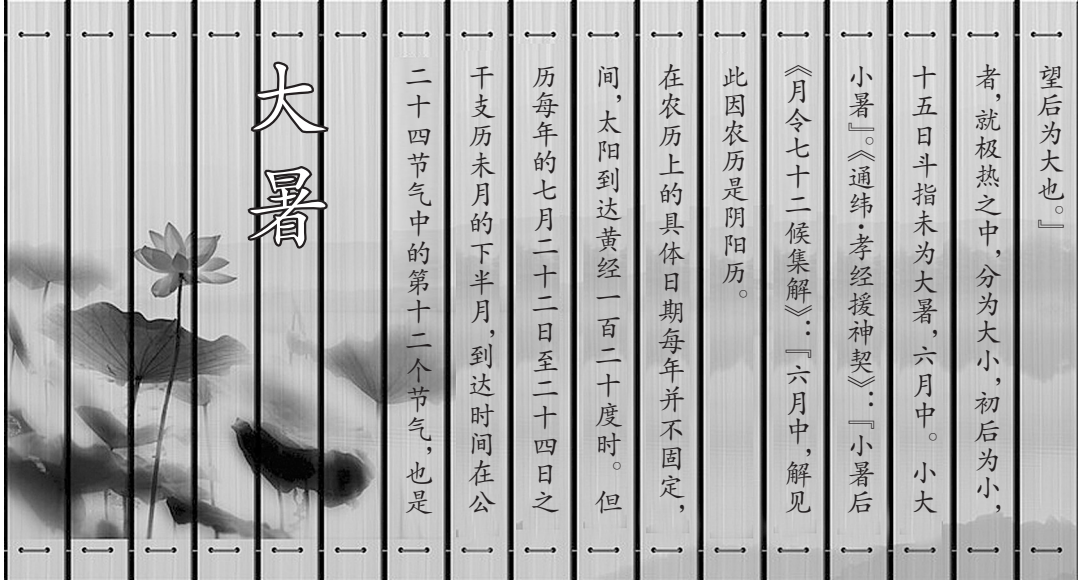 大暑
二十四节气中的第十二个节气，也是
干支历未月的下半月，到达时间在公
历每年的七月二十二日至二十四日之
间，太阳到达黄经一百二十度时。但
在农历上的具体日期每年并不固定，
此因农历是阴阳历。
《月令七十二候集解》：『六月中，解见
小暑』。《通纬·孝经援神契》：『小暑后
十五日斗指未为大暑，六月中。小大
者，就极热之中，分为大小，初后为小，
望后为大也。』